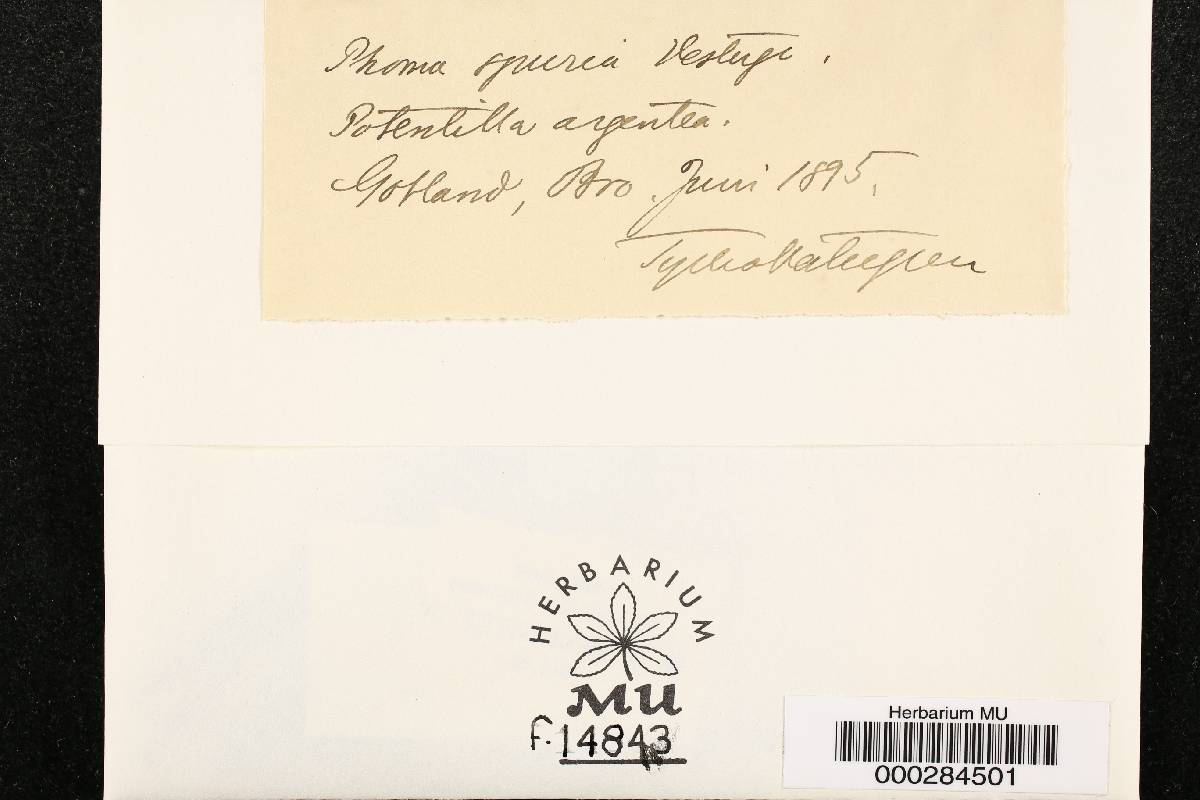 Phoma spuria Vestergr.
Potentilla argentea.
Gotland, Bro. Juni 1895.
Tycho Vestergren
HERBARIUM
MU
F. 14843
Herbarium MU
000284501